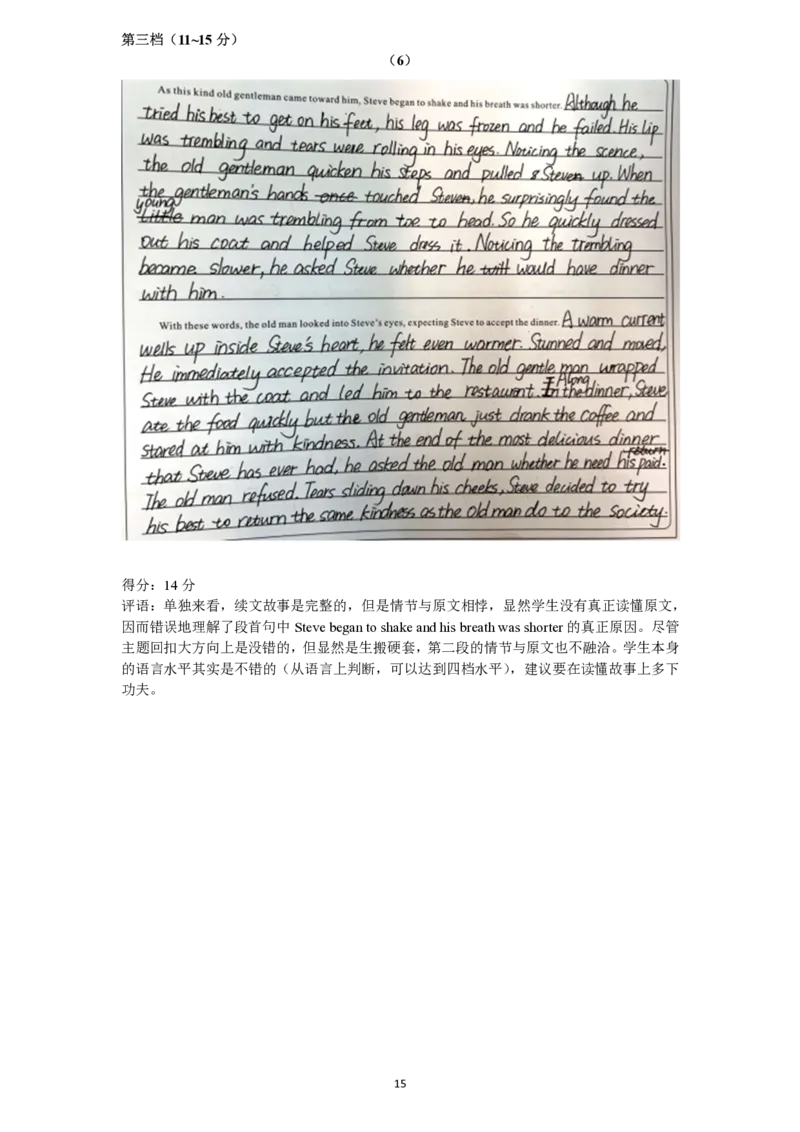 第三档（11~15 分）
（6）
As this kind old gentleman came toward him, Steve began to shake and his breath was shorter. Although he
tried his best to get on his feet, his leg was frozen and he failed. His lip
was trembling and tears were rolling in his eyes. Noticing the scence,
the old gentleman quicken his steps and pulled Steven up. When
the gentleman's hands once touched Steven, he surprisingly found the
young
little man was trembling from toe to head. So he quickly dressed
out his coat and helped Steve dress it. Noticing the trembling
became slower, he asked Steve whether he will would have dinner
with him.
With these words, the old man looked into Steve's eyes, expecting Steve to accept the dinner. A warm current
wells up inside Steve's heart, he felt even warmer. Stunned and moved,
He immediately accepted the invitation. The old gentle man wrapped
Steve with the coat and led him to the restaurant. In Along the dinner, Steve
ate the food quickly but the old gentleman just drank the coffee and
stared at him with kindness. At the end of the most delicious dinner
that Steve has ever had, he asked the old man whether he need his return paid.
The old man refused. Tears sliding down his cheeks, Steve decided to try
his best to return the same kindness as the old man do to the society.
得分：14 分
评语：单独来看，续文故事是完整的，但是情节与原文相悖，显然学生没有真正读懂原文，
因而错误地理解了段首句中 Steve began to shake and his breath was shorter 的真正原因。尽管
主题回扣大方向上是没错的，但显然是生搬硬套，第二段的情节与原文也不融洽。学生本身
的语言水平其实是不错的（从语言上判断，可以达到四档水平），建议要在读懂故事上多下
功夫。
15